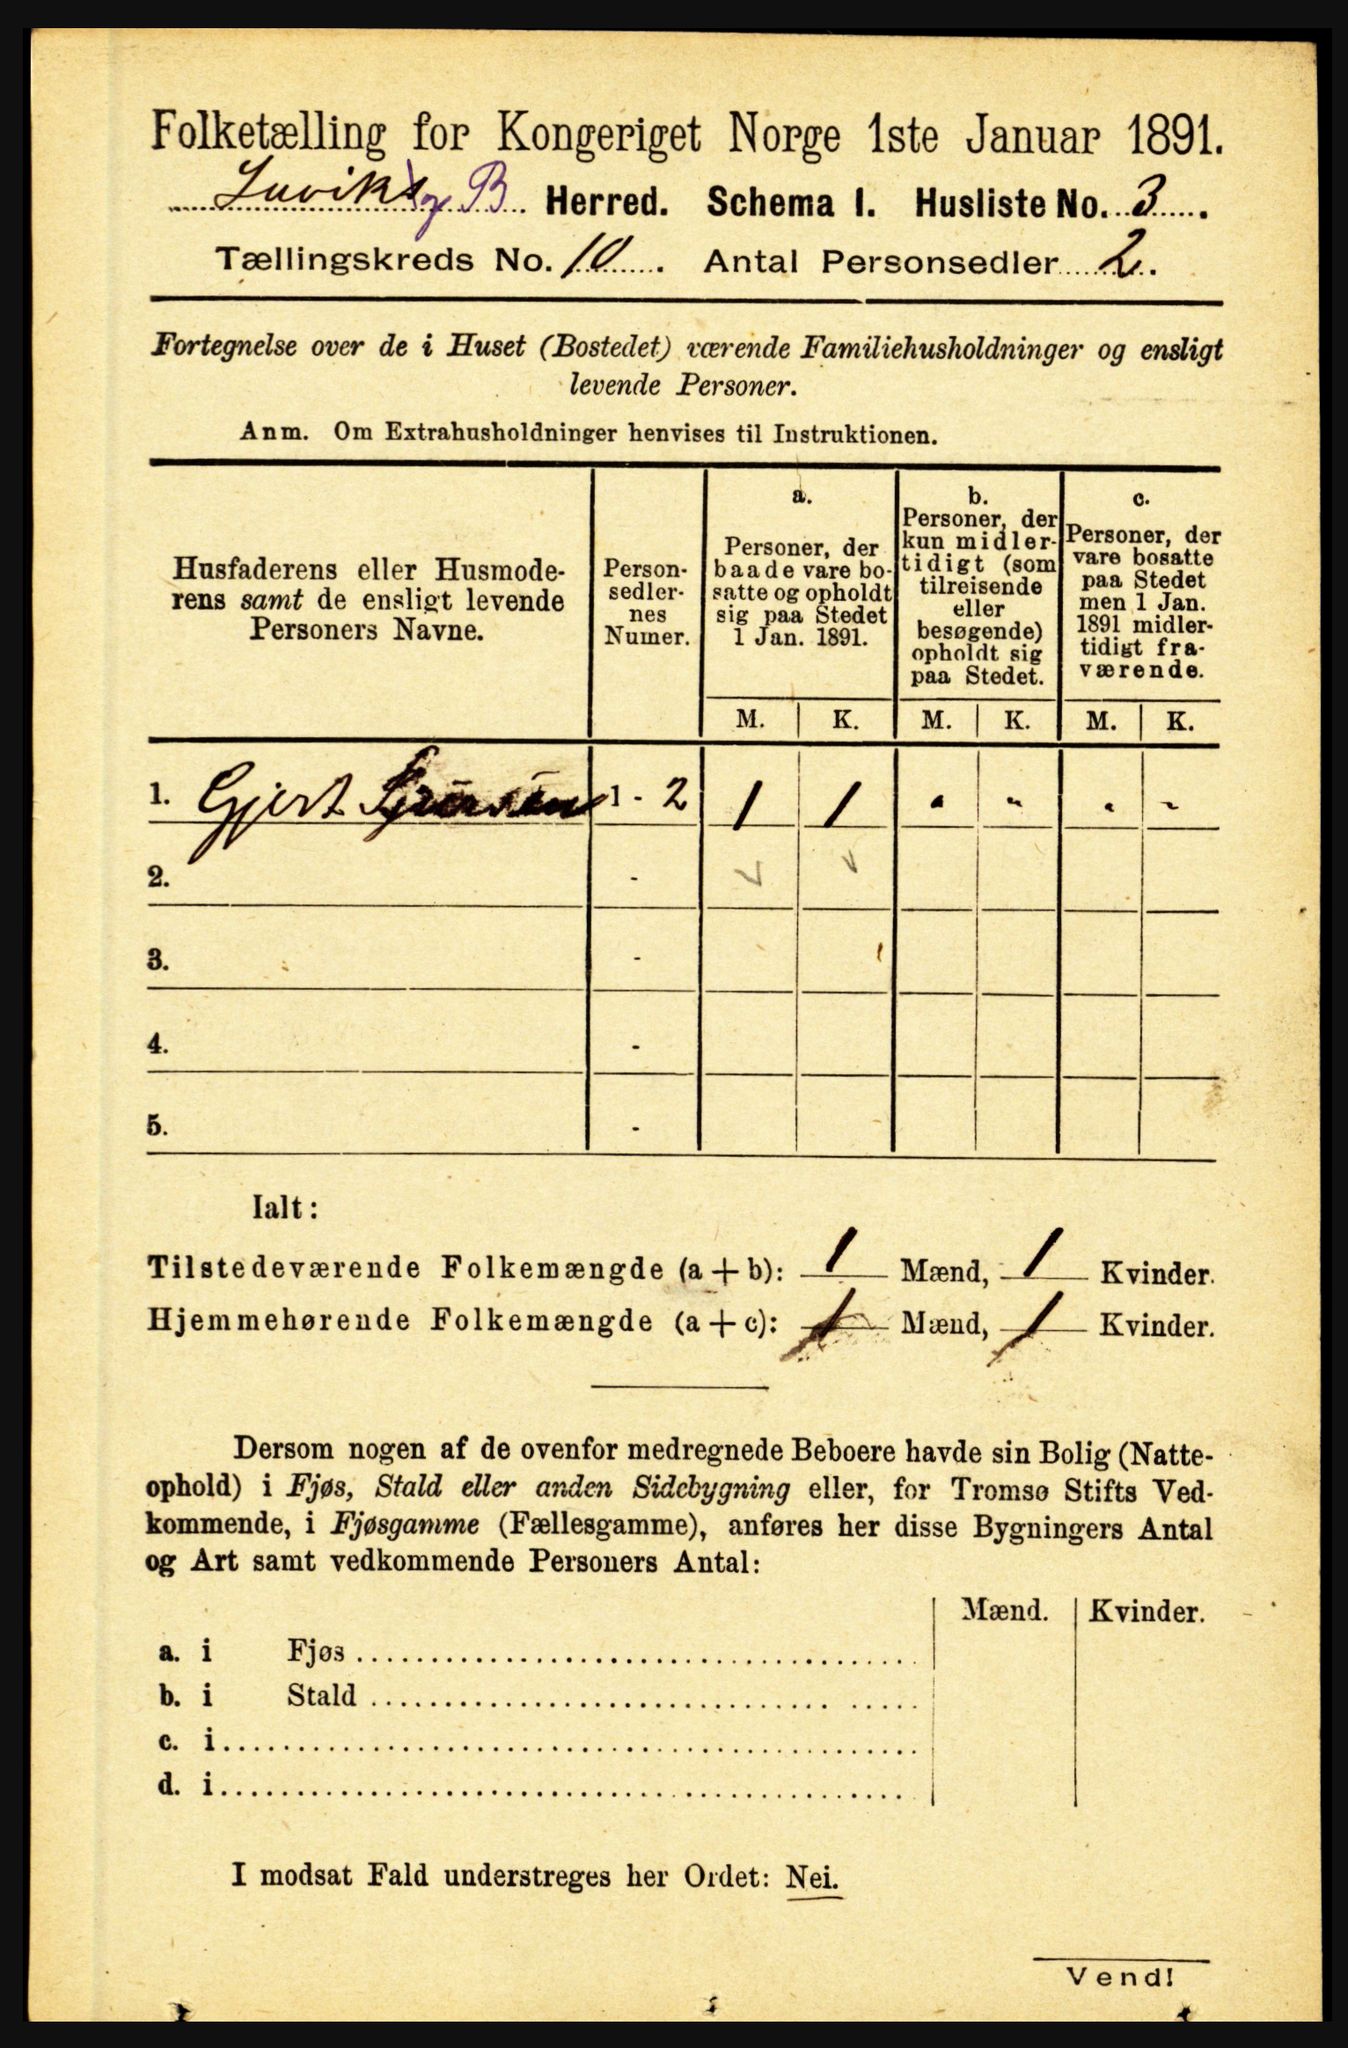 Folketælling for Kongeriget Norge 1ste Januar 1891.
Laviks og B Herred. Schema 1. Husliste No. 3.
Tællingskreds No. 10. Antal Personsedler 2.
Fortegnelse over de i Huset (Bostedet) værende Familiehusholdninger og ensligt
levende Personer.
Anm. Om Extrahusholdninger henvises til Instruktionen.
Husfaderens eller Husmode-
rens samt de ensligt levende
Personers Navne.
Person-
sedler-
nes
Numer.
a.
Personer, der
baade vare bo-
satte og opholdt
sig paa Stedet
1 Jan. 1891.
b.
Personer, der
kun midler-
tidigt (som
tilreisende
eller
besøgende)
opholdt sig
paa Stedet.
c.
Personer, der
vare bosatte
paa Stedet
men 1 Jan.
1891 midler-
tidigt fra-
værende.
M. K. M. K. M. K.
1. Gjert 1 - 2 1 1 " " " "
2. -
3. -
4. -
5. -
Ialt:
Tilstedeværende Folkemængde (a + b): 1 Mænd, 1 Kvinder.
Hjemmehørende Folkemængde (a + c): 1 Mænd, 1 Kvinder.
Dersom nogen af de ovenfor medregnede Beboere havde sin Bolig (Natte-
ophold) i Fjøs, Stald eller anden Sidebygning eller, for Tromsø Stifts Ved-
kommende, i Fjøsgamme (Fællesgamme), anføres her disse Bygningers Antal
og Art samt vedkommende Personers Antal:
Mænd. Kvinder.
a. i Fjøs
b. i Stald
c. i
d. i
I modsat Fald understreges her Ordet: Nei.
Vend!